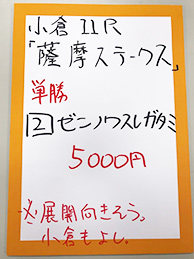 小倉 11R
「薩摩ステークス」
単勝
2 ゼンノワスレガタミ
5000円
※展開向きそう。
小倉もよし。